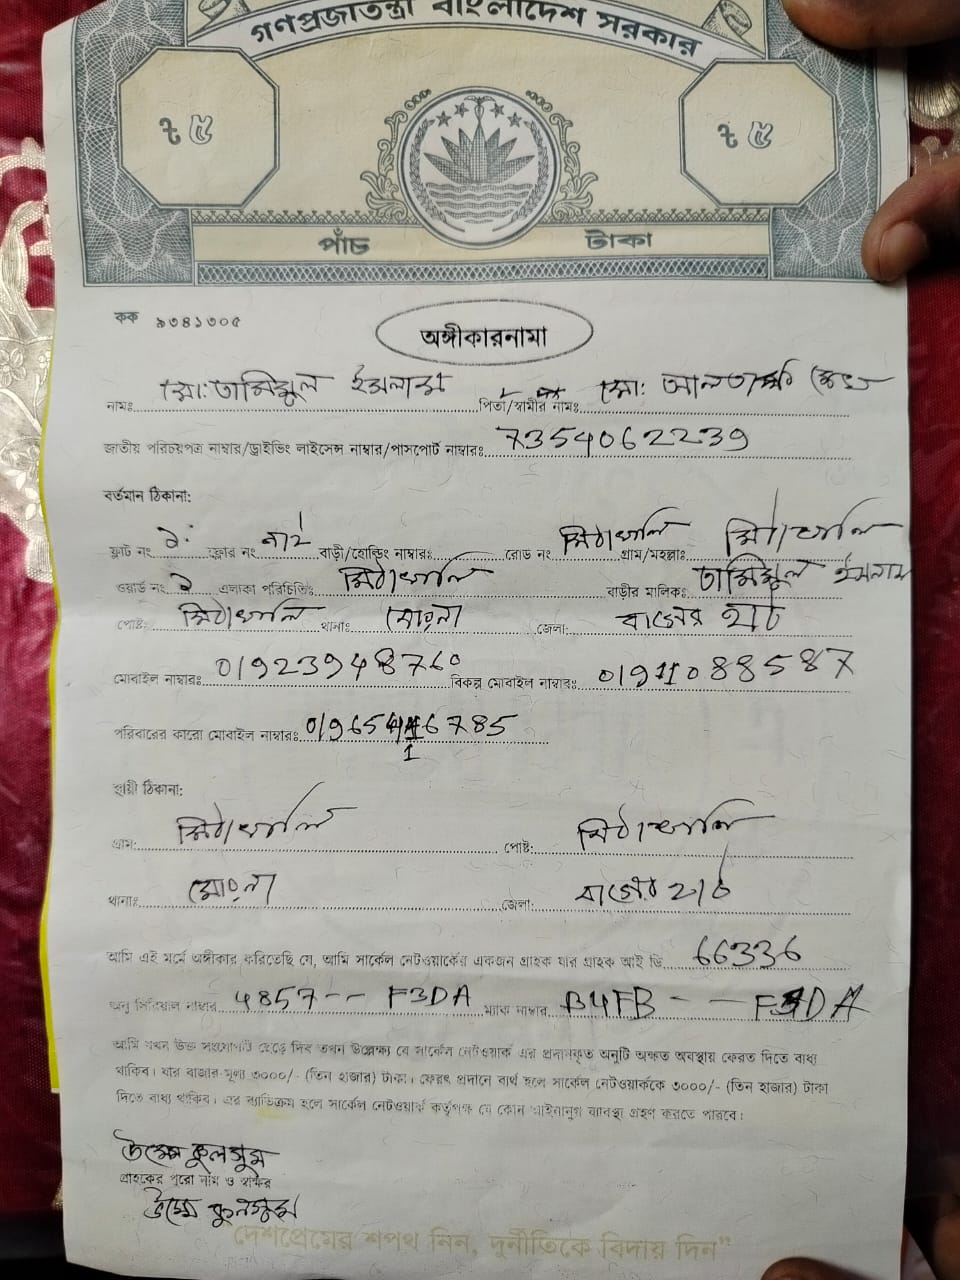 গণপ্রজাতন্ত্রী বাংলাদেশ সরকার
৳ ৫ ৳ ৫
পাঁচ টাকা
কক ৯৩৪১৩০৫
অঙ্গীকারনামা
নামঃ মো: তামিমুল ইসলাম পিতা/স্বামীর নামঃ মো: আলতাফ
জাতীয় পরিচয়পত্র নাম্বার/ড্রাইভিং লাইসেন্স নাম্বার/পাসপোর্ট নাম্বারঃ 7354062239
বর্তমান ঠিকানা:
ফ্লাট নং ফ্লোর নং নাই বাড়ী/হোল্ডিং নাম্বারঃ রোড নং মিঠাখালি গ্রাম/মহল্লাঃ মিঠাখালি
ওয়ার্ড নং এলাকা পরিচিতিঃ মিঠাখালি বাড়ীর মালিকঃ তামিমুল ইসলাম
পোষ্ট: মিঠাখালি থানাঃ মোংলা জেলা: বাগের হাট
মোবাইল নাম্বারঃ 01923948760 বিকল্প মোবাইল নাম্বারঃ 01911088587
পরিবারের কারো মোবাইল নাম্বারঃ
স্থায়ী ঠিকানা:
গ্রাম: মিঠাখালি পোষ্ট: মিঠাখালি
থানাঃ মোংলা জেলা: বাগের হাট
আমি এই মর্মে অঙ্গীকার করিতেছি যে, আমি সার্কেল নেটওয়ার্কের একজন গ্রাহক যার গ্রাহক আই ডি 66336
অনু সিরিয়াল নাম্বার 4857-- F3DA ম্যাক নাম্বার B4FB - - F3DA
আমি যখন উক্ত সংযোগটি ছেড়ে দিব তখন উল্লেক্ষ্য যে সার্কেল নেটওয়ার্ক এর প্রদানকৃত অনুটি অক্ষত অবস্থায় ফেরত দিতে বাধ্য
থাকিব। যার বাজার মূল্য ৩০০০/- (তিন হাজার) টাকা। ফেরৎ প্রদানে ব্যর্থ হলে সার্কেল নেটওয়ার্ককে ৩০০০/- (তিন হাজার) টাকা
দিতে বাধ্য থাকিব। এর ব্যতিক্রম হলে সার্কেল নেটওয়ার্ক কর্তৃপক্ষ যে কোন আইনানুগ ব্যবস্থা গ্রহণ করতে পারবে।
উম্মে কুলসুম
গ্রাহকের পুরো নাম ও স্বাক্ষর
উম্মে কুলসুম
"দেশপ্রেমের শপথ নিন, দুর্নীতিকে বিদায় দিন"